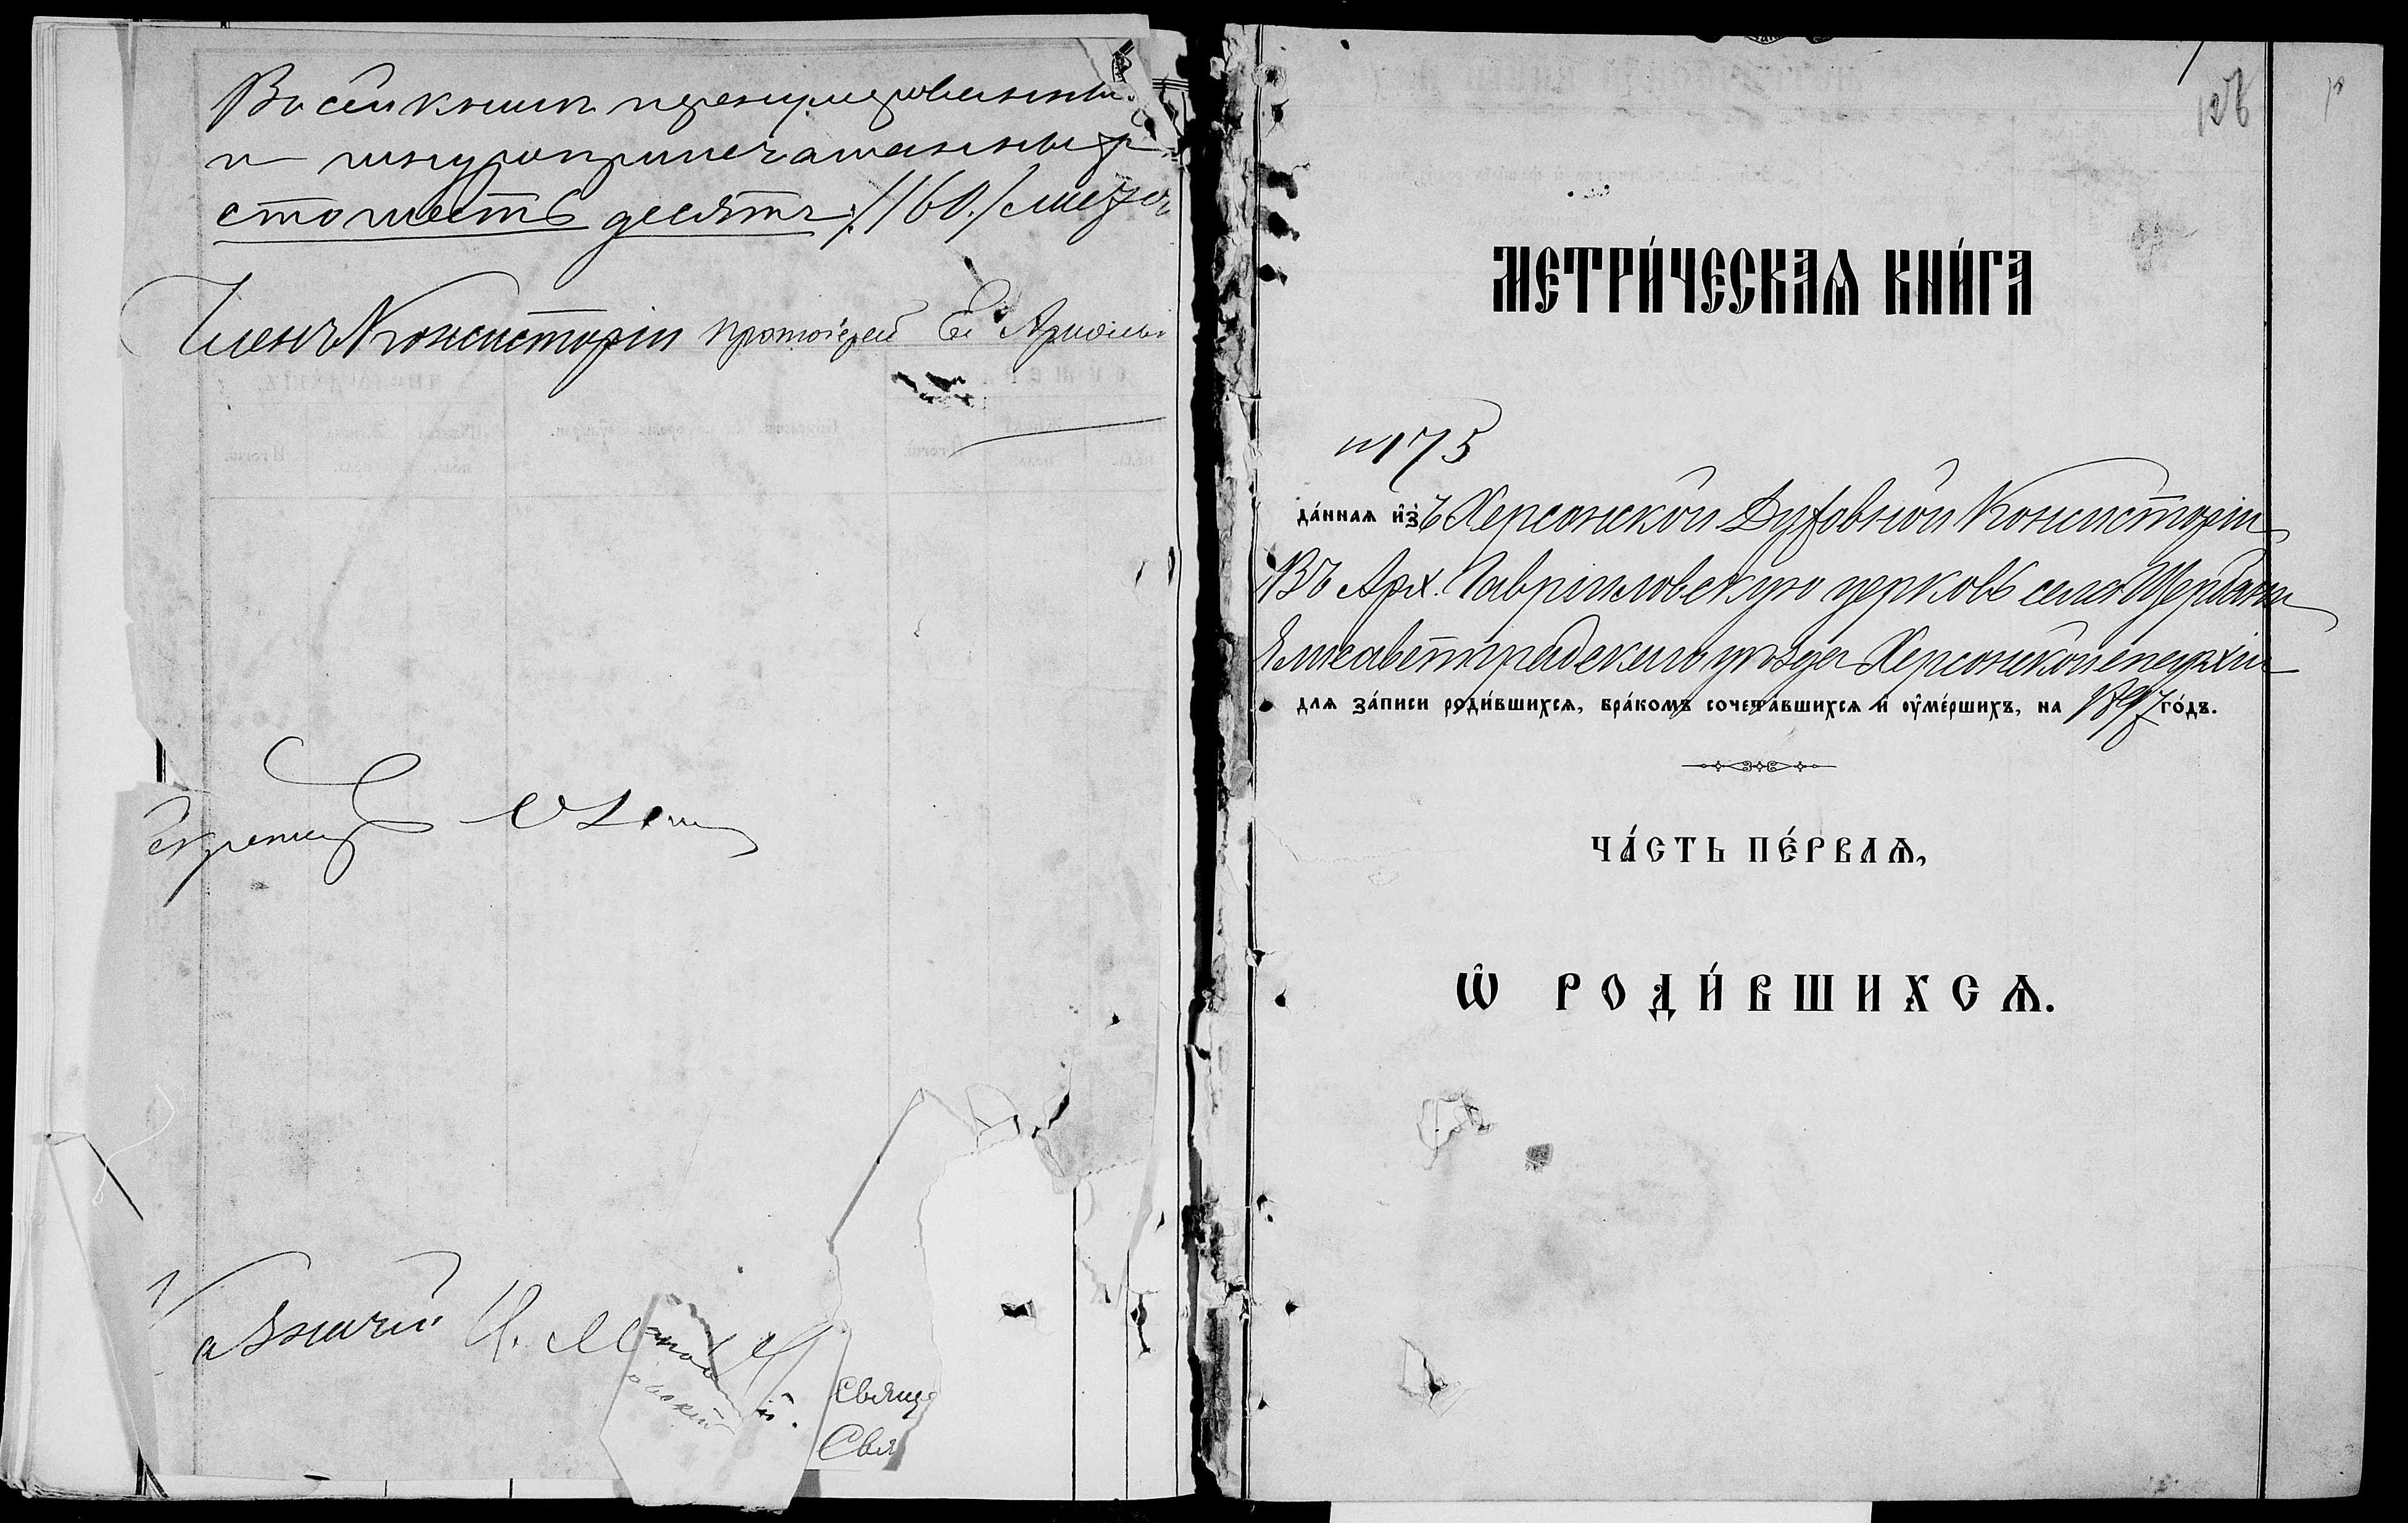 Въ сей книгѣ перенумерованныхъ
и шнуроприпечатанныхъ
сто шестьдесятъ /160/ листовъ
Членъ Консисторіи Протоіерей
Секретарь
Казначей
Свяще
Свя
126
МЕТРИ́ЧЕСКАѦ КНИ́ГА
№175
да́ннаѧ и҆зъ Херсонской Духовной Консисторіи
Въ Арх. Гавріиловскую церковь села Щербани
Елисаветградскаго уѣзда Херсонской епархіи
длѧ за́писи роди́вшихсѧ, бра́комъ сочета́вшихсѧ и҆ оу҆ме́ршихъ, на 1897 го́дъ.
ЧА́СТЬ ПЕ́РВАѦ,
Ѡ҆ РОДИ́ВШИХСѦ.